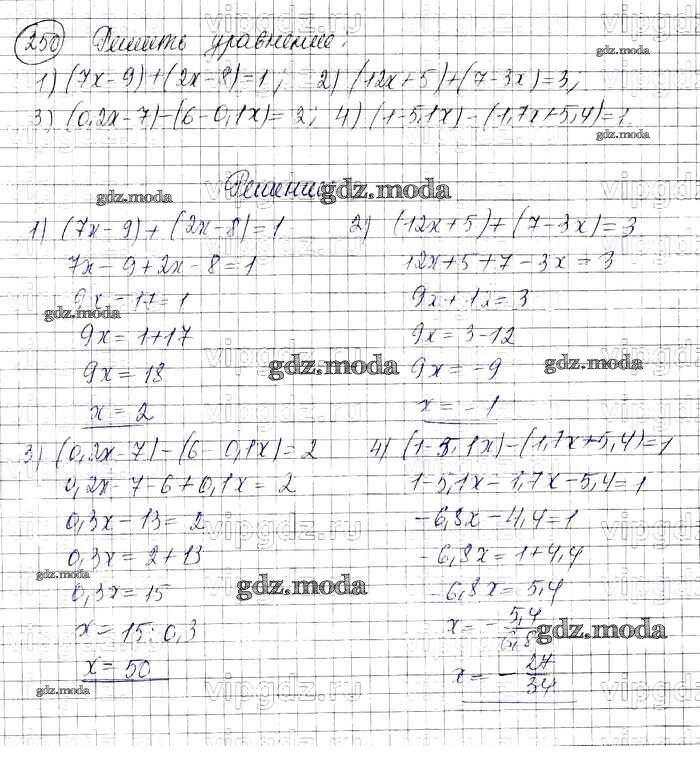 250 Решить уравнение:
1) (7x-9)+(2x-8)=1; 2) (12x+5)+(7-3x)=3;
3) (0,2x-7)-(6-0,1x)=2; 4) (1-5,1x)-(1,7x+5,4)=1
Решение:
1) (7x-9)+(2x-8)=1
7x-9+2x-8=1
9x-17=1
9x=1+17
9x=18
x=2
2) (12x+5)+(7-3x)=3
12x+5+7-3x=3
9x+12=3
9x=3-12
9x=-9
x=-1
3) (0,2x-7)-(6-0,1x)=2
0,2x-7-6+0,1x=2
0,3x-13=2
0,3x=2+13
0,3x=15
x=15:0,3
x=50
4) (1-5,1x)-(1,7x+5,4)=1
1-5,1x-1,7x-5,4=1
-6,8x-4,4=1
-6,8x=1+4,4
-6,8x=5,4
x=-5,4/6,8
x=-27/34
gdz.moda
vipgdz.ru